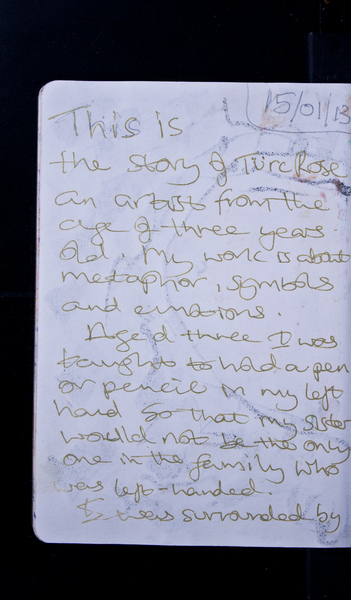 15/01/13
This is
the story of Turc Rose
an artist from the
age of three years
old. My work is about
metaphor, symbols
and emotions.
Aged three I was
taught to hold a pen
or pencil in my left
hand so that my sister
would not be the only
one in the family who
was left-handed.
I was surrounded by